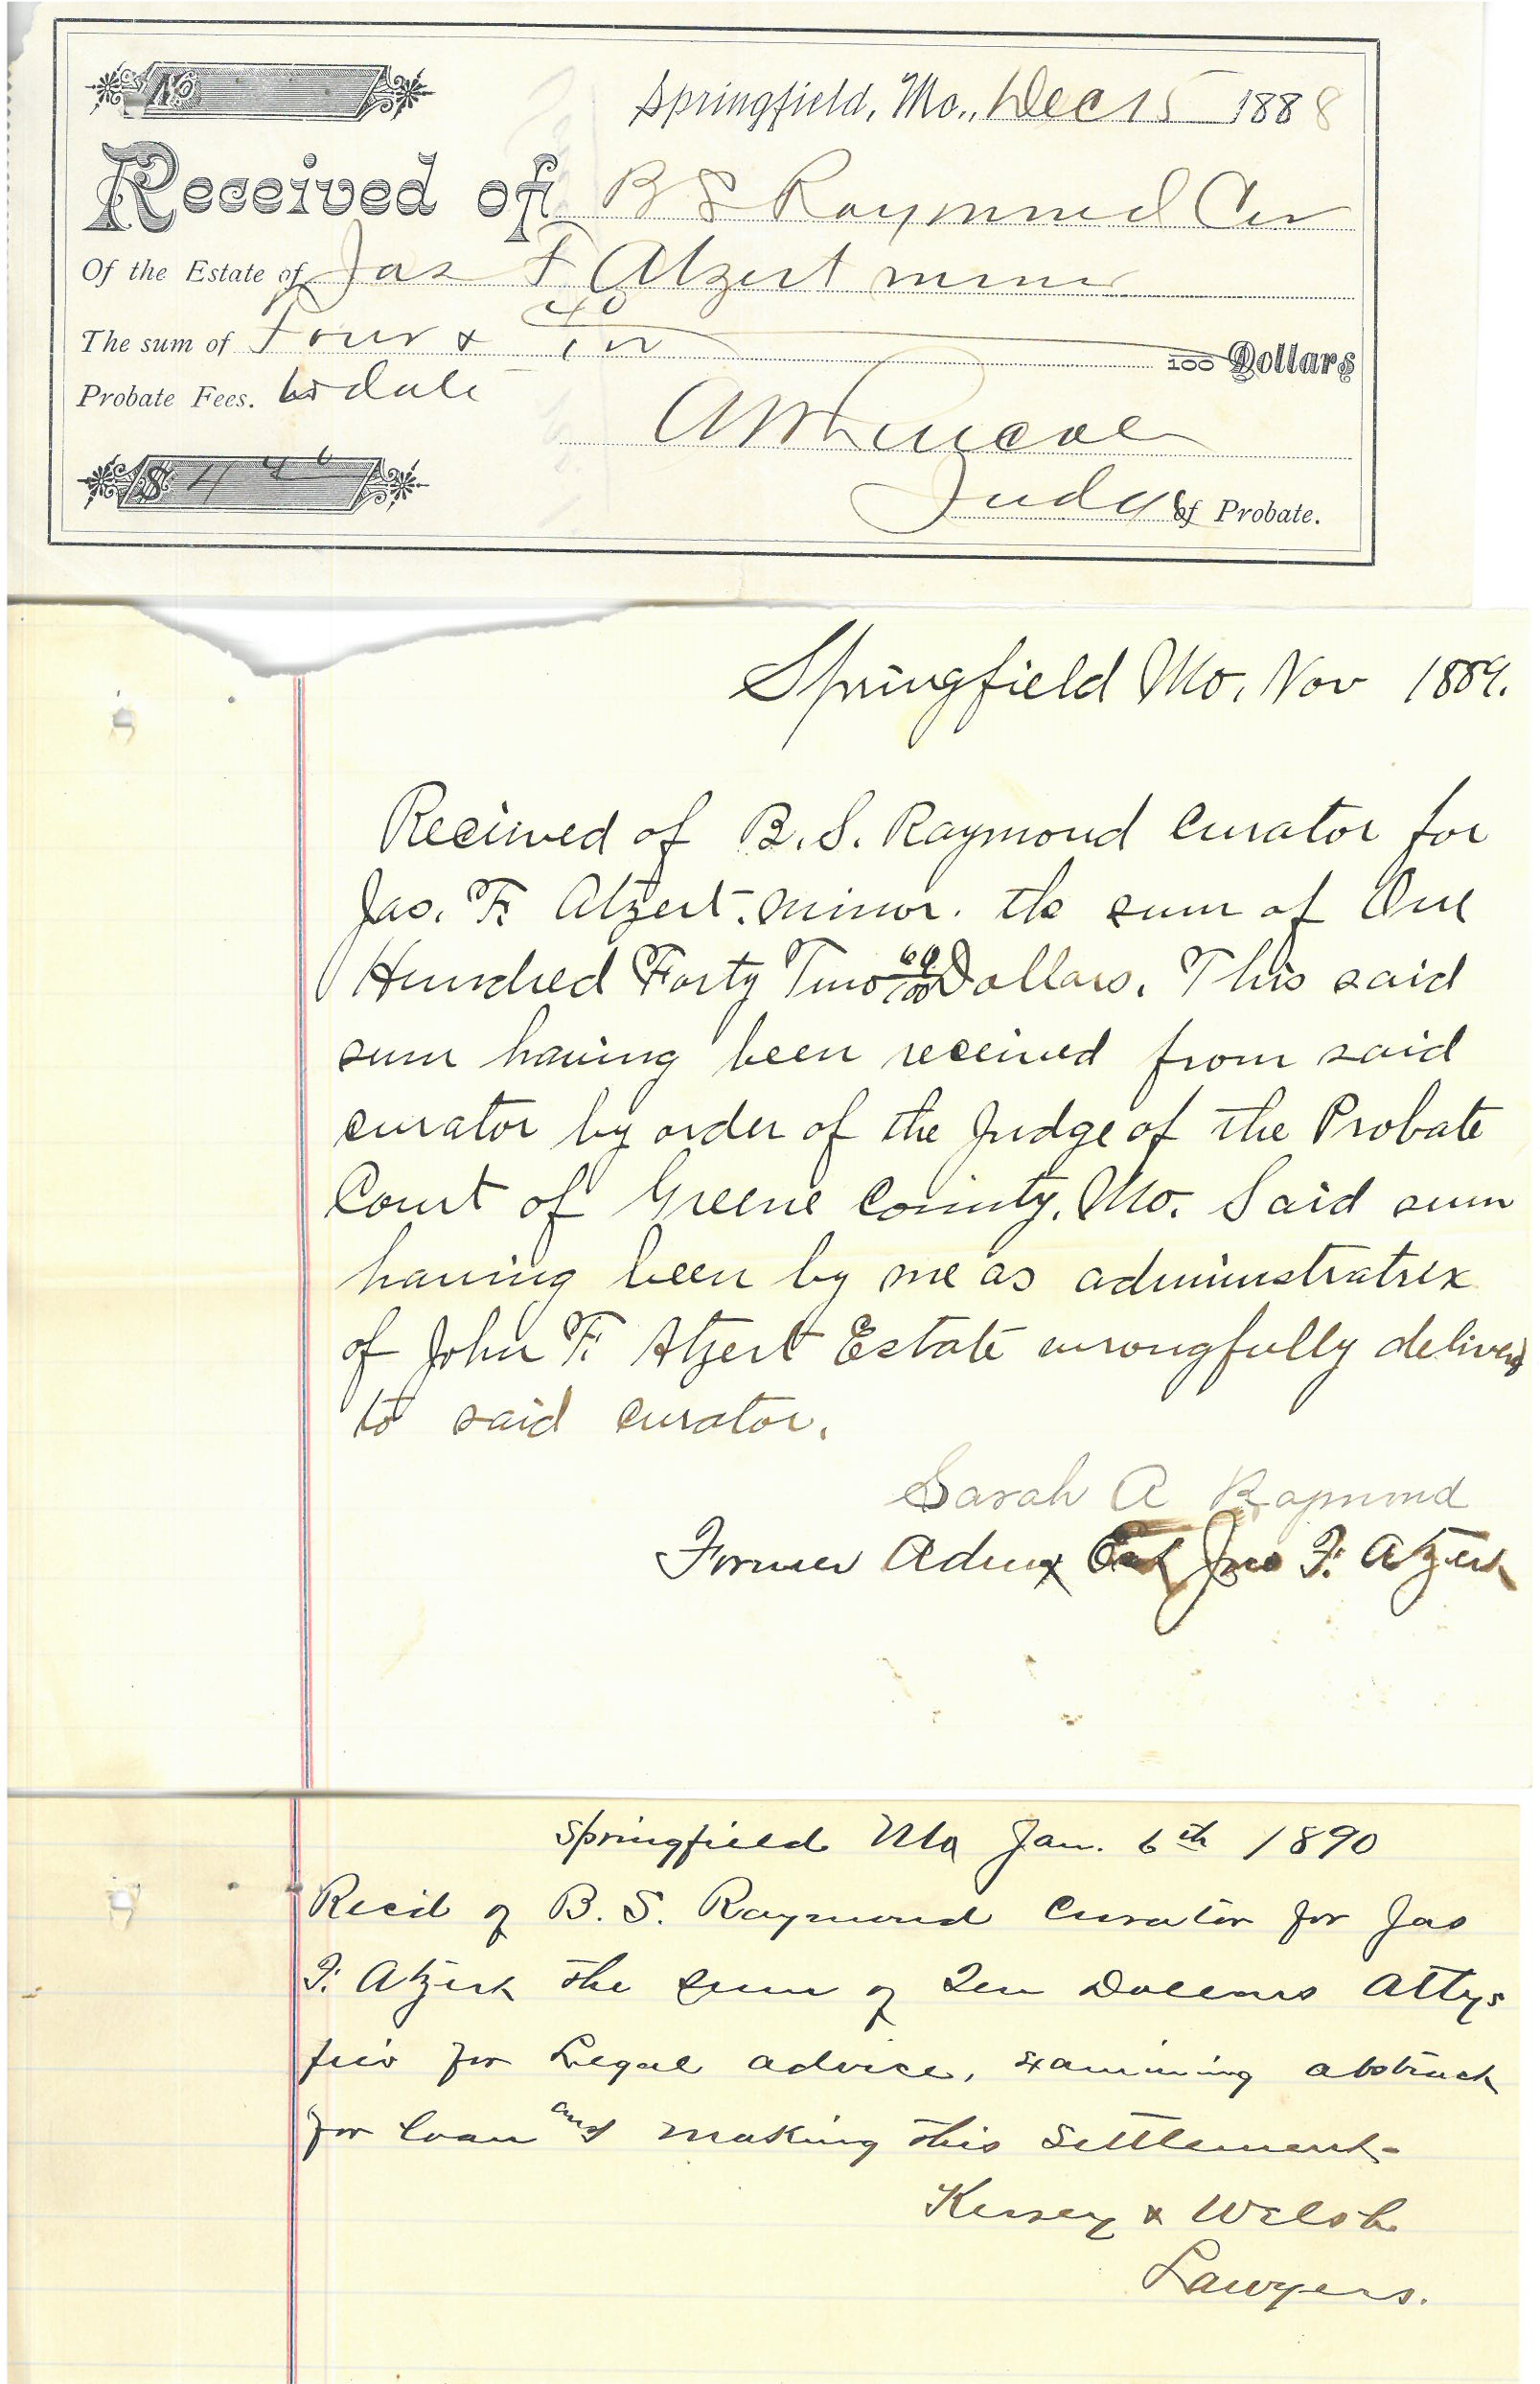 No
Springfield, Mo., Dec 15 1888
Received of B S Raymond Cur
Of the Estate of Jas F Atzert minor
The sum of Four & 40/100 100 Dollars
Probate Fees. to date
A W Lincoln
$ 4 40
Judge of Probate.
Springfield Mo, Nov 1889.
Received of B. S. Raymond Curator for
Jas. F. Atzert. minor. the sum of One
Hundred Forty Two 60/100 Dollars. This said
sum having been received from said
curator by order of the Judge of the Probate
Court of Greene County, Mo. Said sum
having been by me as administratrix
of John F. Atzert Estate wrongfully delivered
to said curator.
Sarah A Raymond
Former Admx Est Jno F. Atzert
Springfield Mo Jan. 6th 1890
Recd of B. S. Raymond Curator for Jas
F. Atzert the sum of Ten Dollars Attys
fees for Legal advice, examining abstract
for loan and making this settlement-
Kersey & Welsh
Lawyers.